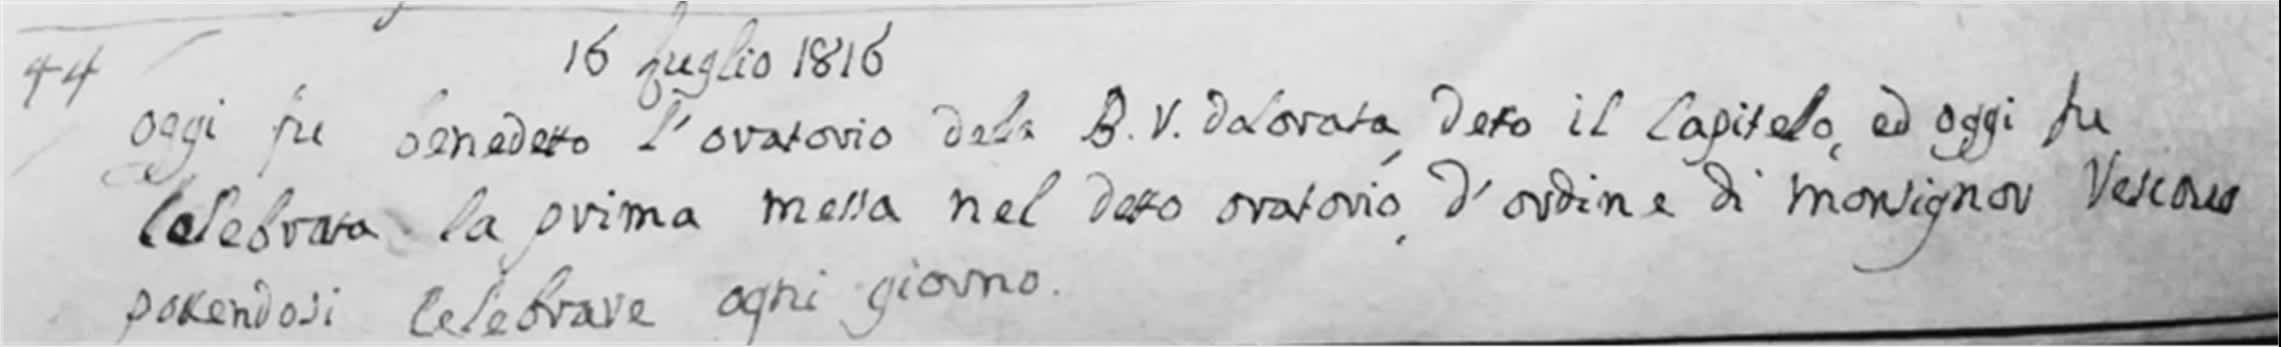 44
16 Luglio 1816
oggi fu benedetto l'oratorio dela B. V. Dolorata, deto il Capitelo, ed oggi fu
Celebrata la prima messa nel detto oratorio, d'ordine di monsignor Vescovo
potendosi Celebrare ogni giorno.